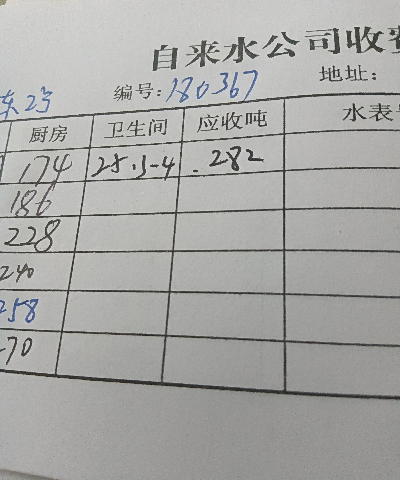 自来水公司收费
东23 编号:180367 地址:
厨房 卫生间 应收吨 水表
174 25.3-4 .282
186
228
240
258
270